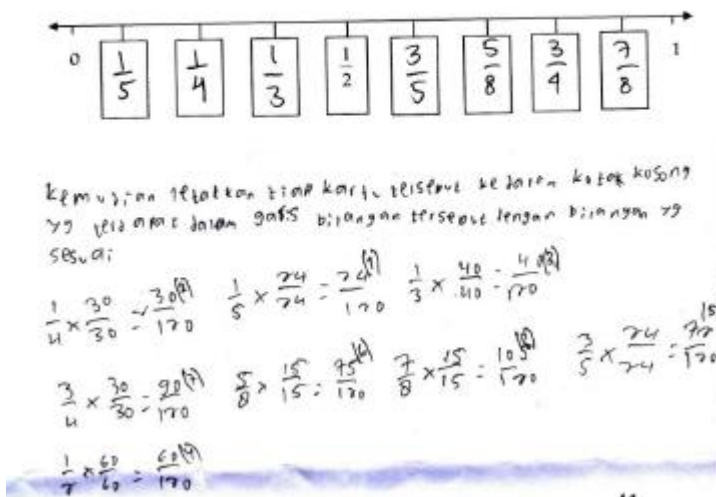 0 1/5 1/4 1/3 1/2 3/5 5/8 3/4 7/8 1
Kemudian letakkan tiap kartu tersebut ke dalam kotak kosong
yg terdapat dalam garis bilangan tersebut dengan bilangan yg
sesuai
1/4 × 30/30 = 30/120 (2) 1/5 × 24/24 = 24/120 (1) 1/3 × 40/40 = 40/120 (3)
3/4 × 30/30 = 90/120 (7) 5/8 × 15/15 = 75/120 (6) 7/8 × 15/15 = 105/120 (8) 3/5 × 24/24 = 72/120 (5
1/2 × 60/60 = 60/120 (4)